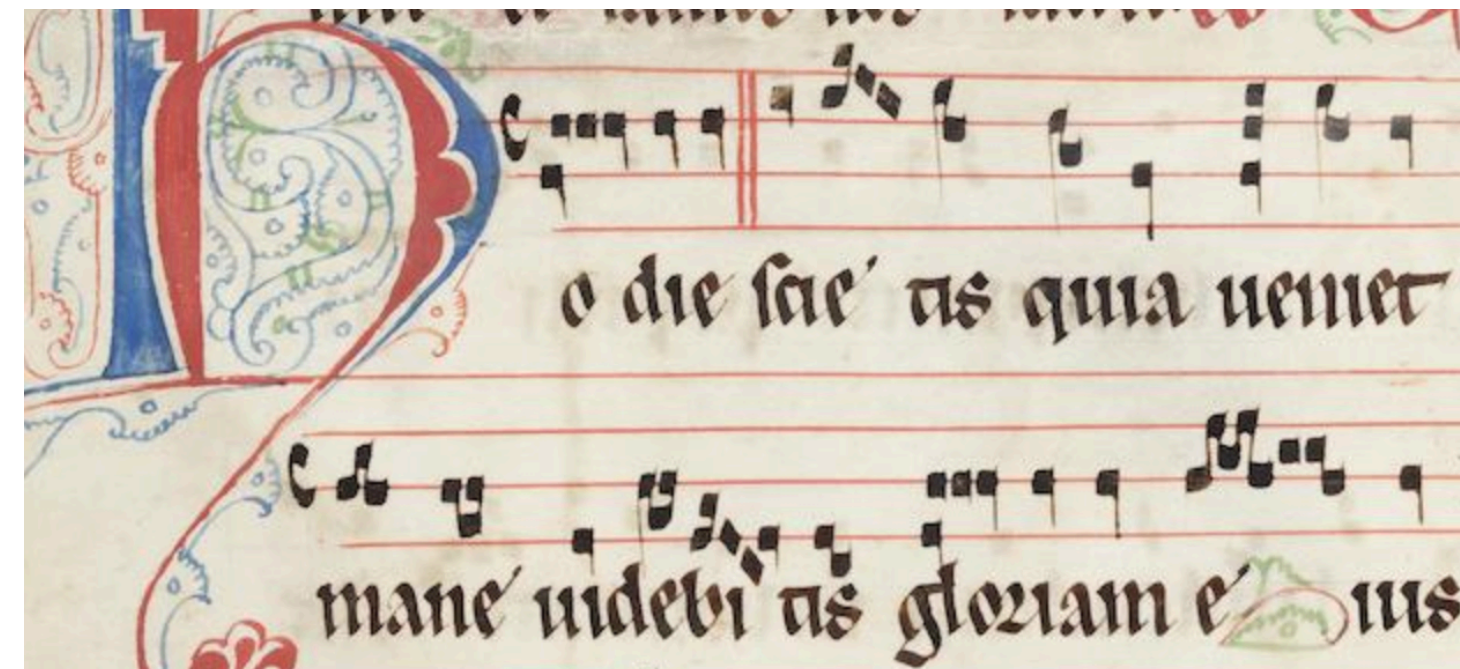 Hodie scietis quia ueniet
mane uidebitis gloriam eius